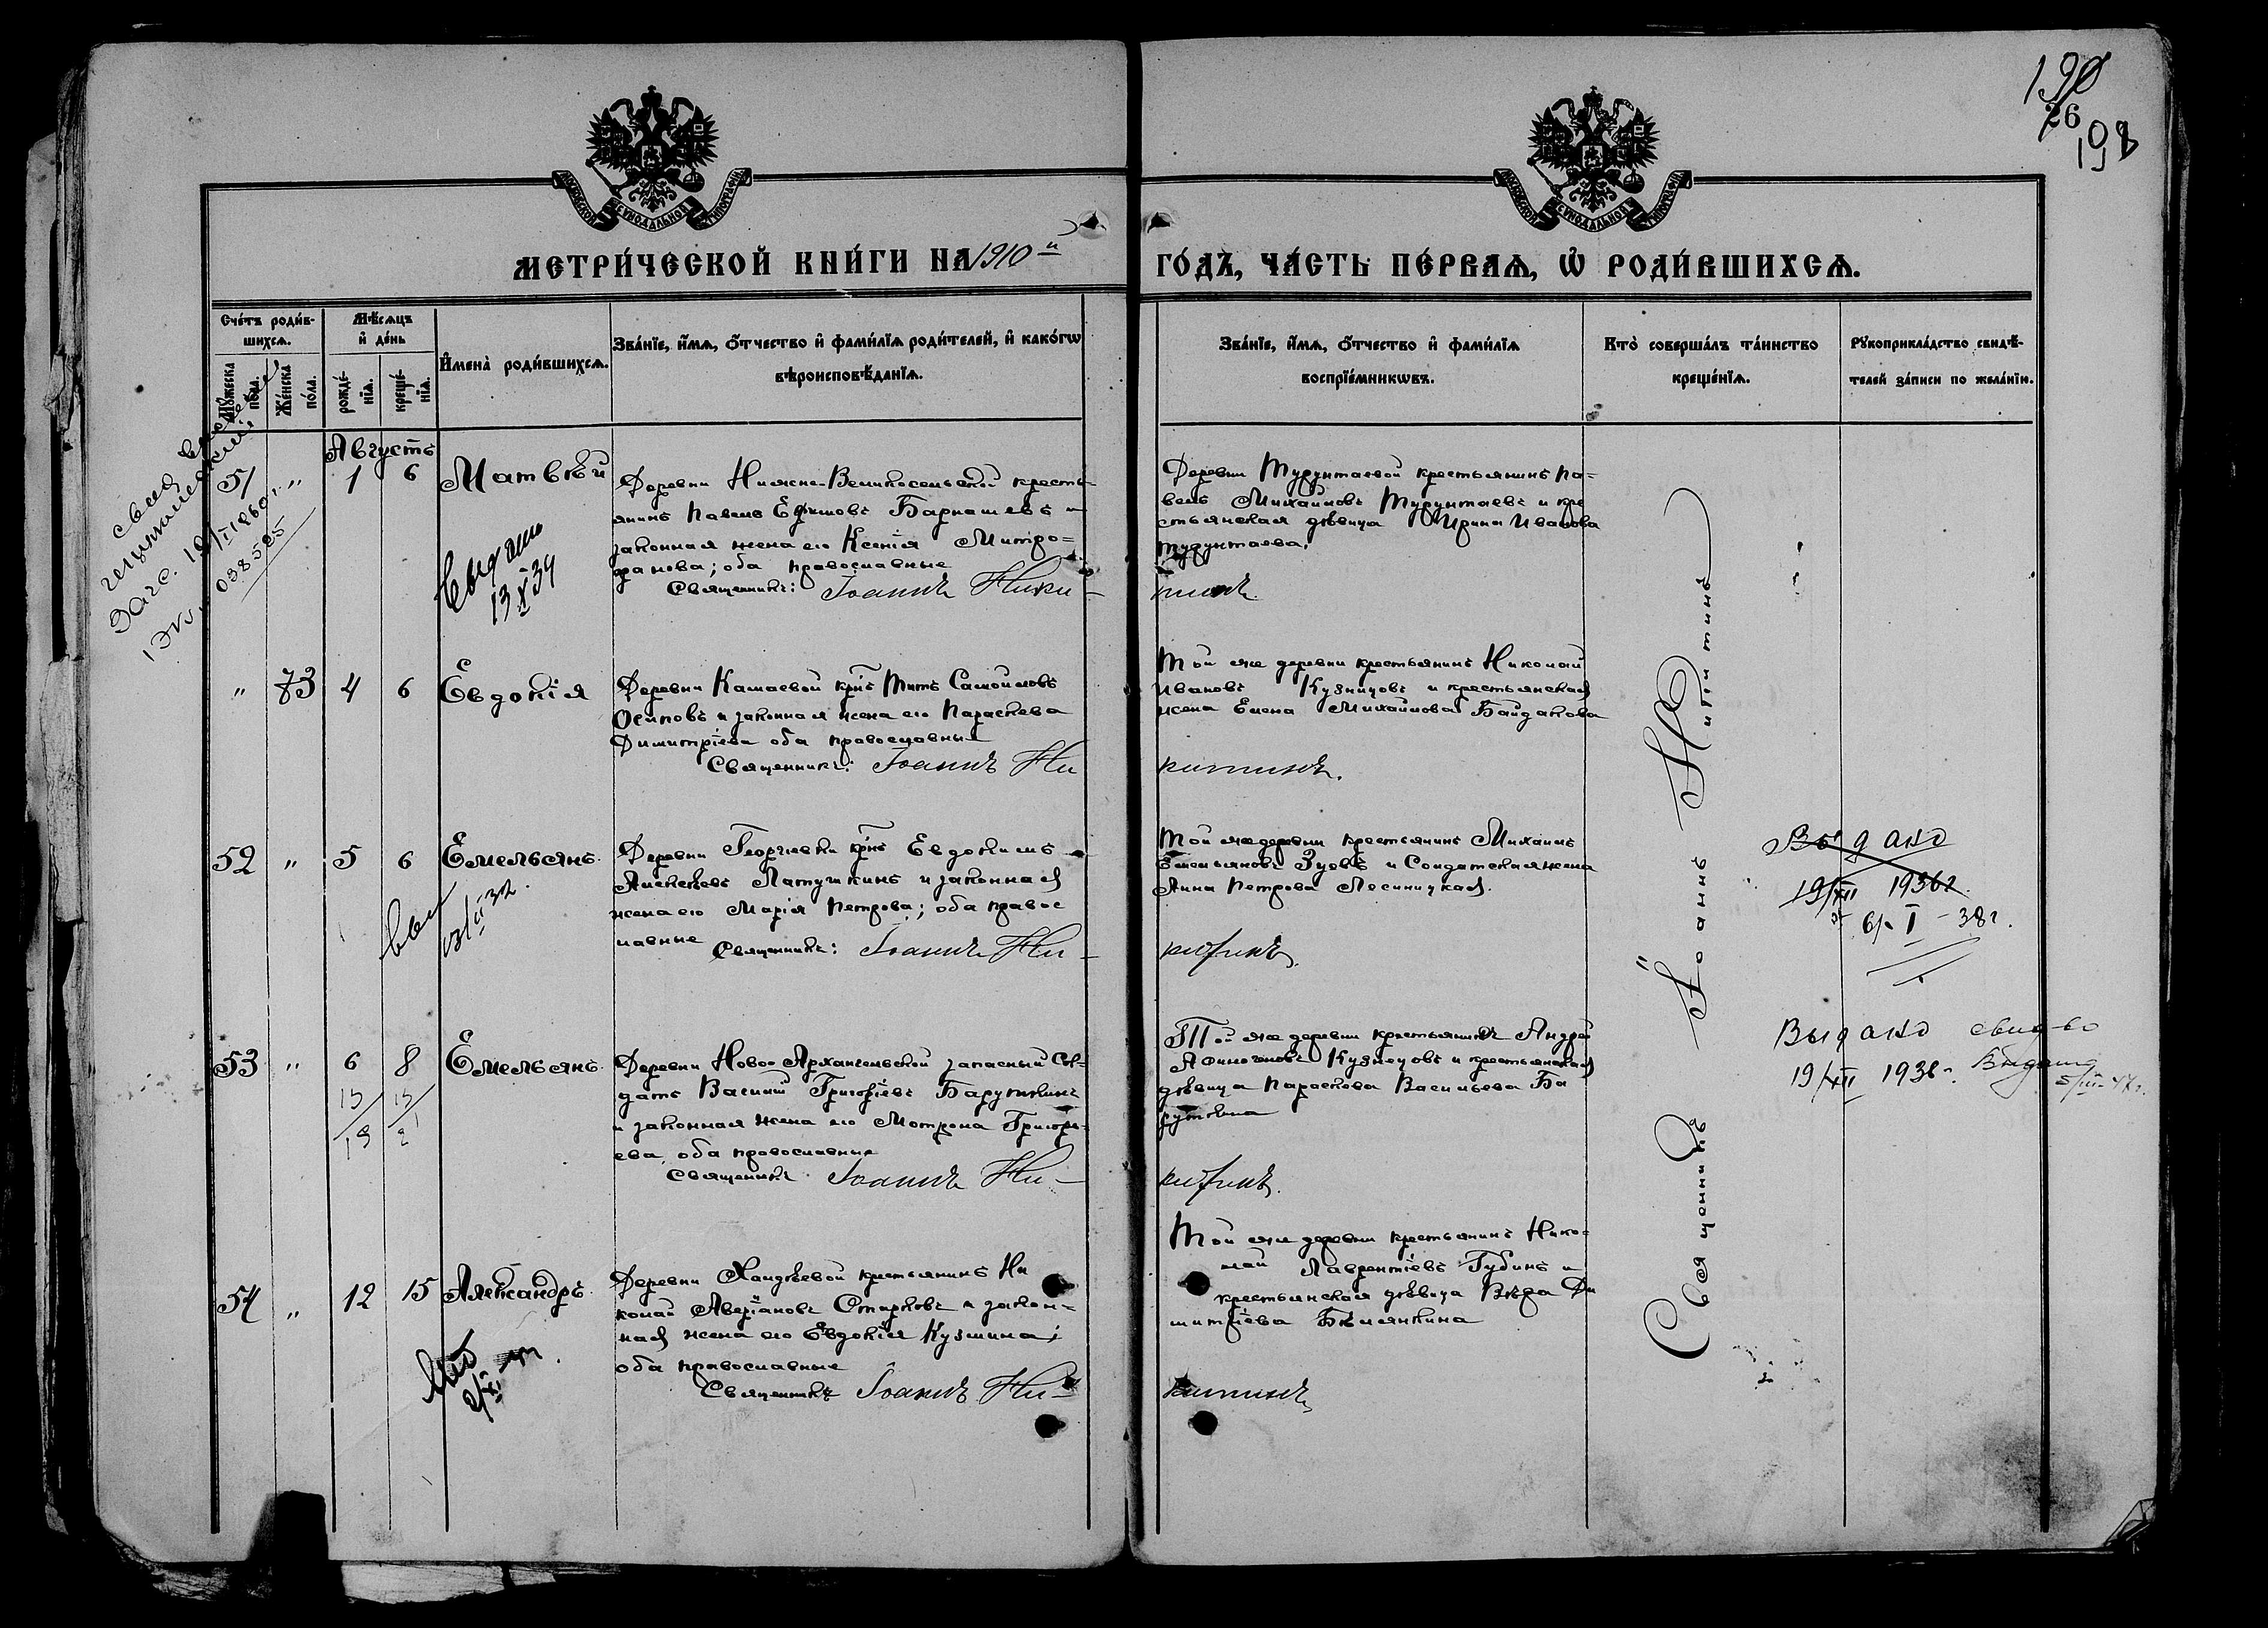 190
26
198
МОСКОВСКОЙ СѴНОДАЛЬНОЙ ТИПОГРАФІИ
МОСКОВСКОЙ СѴНОДАЛЬНОЙ ТИПОГРАФІИ
МЕТРИ́ЧЕСКОЙ КНИ́ГИ НА 1910 й
ГО́ДЪ, ЧА́СТЬ ПЕ́РВАѦ, Ѽ РОДИ́ВШИХСѦ.
Сче́тъ роди́в-
шихсѧ.
Мѹжеска по́ла.
Же́нска по́ла.
Мѣ́сѧцъ
и҆ де́нь
рожде́-
нїѧ.
креще́-
нїѧ.
И҆мена̀ роди́вшихсѧ.
Зва́нїе, и҆́мѧ, ѻ҆́тчество и҆ фами́лїѧ роди́телей, и҆ како́гѡ
вѣроисповѣ́данїѧ.
Зва́нїе, и҆́мѧ, ѻ҆́тчество и҆ фами́лїѧ
воспрїе́мникѡвъ.
Кто̀ соверша́лъ та́инство
креще́нїѧ.
Рꙋкоприкла́дство свидѣ́-
телей за́писи по жела́нїю.
Августъ
51 " 1 6 Матвѣй
Деревни Нижне-Великосельской кресть-
янинъ Павелъ Ефимовъ Барнашевъ и
законная жена его Ксенія Митро-
фанова; оба православные
Священникъ: Іоаннъ Ники-
Деревни Турунтаевой крестьянинъ Па-
велъ Михайловъ Турунтаевъ и кре
стьянская дѣвица Ирина Иванова
Турунтаева.
тинъ.
13 X 34
038585
" 73 4 6 Евдокія
Деревни Катаевой кр͠нъ Титъ Самойловъ
Осиповъ и законная жена его Параскева
Димитріева оба православные
Священникъ: Іоаннъ Ни
Той же деревни крестьянинъ Николай
Ивановъ Кузнецовъ и крестьянская
жена Елена Михайлова Байдакова
китинъ.
52 " 5 6 Емельянъ.
Деревни Георгіевки кр͠нъ Евдокимъ
Алексѣевъ Латушкинъ и законная
жена его Марія Петрова; оба правос
лавные Священникъ: Іоаннъ Ни-
Той же деревни крестьянинъ Михаилъ
Емельяновъ Зуевъ и Солдатская жена
Анна Петрова Лесницкая.
китинъ.
Выдано
19/XII 1936 г.
6/I-38 г.
53 " 6 8 Емельянъ.
13 13
19 21
Деревни Ново-Архангельской запасный Сол-
датъ Василій Григорьевъ Баруткинъ
и законная жена его Мотрона Григорь-
ева, оба православные
Священникъ Іоаннъ Ни-
Той же деревни крестьянинъ Андрей
Кузнецовъ и крестьянская
дѣвица Параскева Васильева Ба
руткина
китинъ.
Выдано свид-во
19/XII 1936 г.
54 " 12 15 Александръ.
Деревни Халдѣевой крестьянинъ Ни
колай Аверіановъ Старковъ и закон-
ная жена его Евдокія Кузмина;
оба православные
Священникъ Іоаннъ Ни-
Той же деревни крестьянинъ Нико-
лай Лаврентіевъ Губинъ и
крестьянская дѣвица Вѣра Ди
митріева Бѣлянкина
китинъ.
Священникъ Іоаннъ Никитинъ